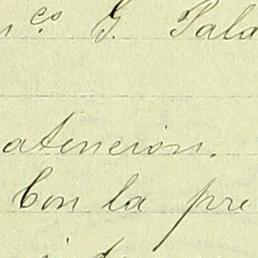 co G. Pala
atencion.
Con la pre